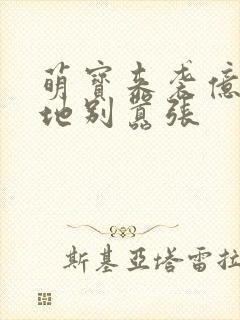 萌寶來袭億
地别囂張
斯基亞塔雷拉